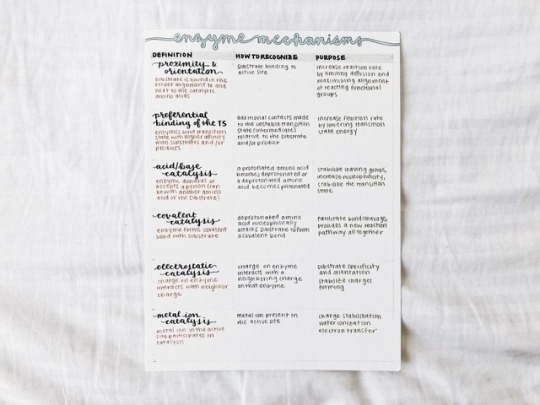 enzyme mechanisms
DEFINITION HOW TO RECOGNIZE PURPOSE
proximity &
orientation
substrate is bound in the
proper alignment to and
next to the catalytic
amino acids
substrate binding to
active site
increase reaction rate
by limiting diffusion and
maximizing alignment
of reacting functional
groups
preferential
binding of the TS
enzymes bind transition
state with higher affinity
than substrates and/or
products
additional contacts made
to the unstable transition
state (intermediate)
relative to the substrate
and/or product
increase reaction rate
by lowering transition
state energy
acid/base
catalysis
enzyme donates or
accepts a proton (can
be with another amino
acid or the substrate)
a protonated amino acid
becomes deprotonated or
a deprotonated amino
acid becomes protonated
stabilize leaving groups,
increase nucleophilicity,
stabilize the transition
state
covalent
catalysis
enzyme forms covalent
bond with substrate
deprotonated amino
acid nucleophilically
attacks substrate to form
a covalent bond
facilitate bond cleavage,
provides a new reaction
pathway all together
electrostatic
catalysis
charge on enzyme
interacts with neighbor
charge
charge on enzyme
interacts with a
neighboring charge
on that enzyme
substrate specificity
and orientation
stabilize charges
forming
metal ion
catalysis
metal ion in the active
site participates in
catalysis
metal ion present in
the active site
charge stabilization
water ionization
electron transfer